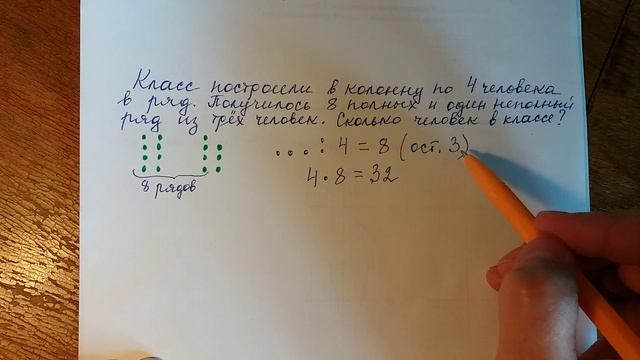 Класс построили в колонну по 4 человека
в ряд. Получилось 8 полных и один неполный
ряд из трёх человек. Сколько человек в классе?
... : 4 = 8 (ост. 3)
8 рядов
4 · 8 = 32